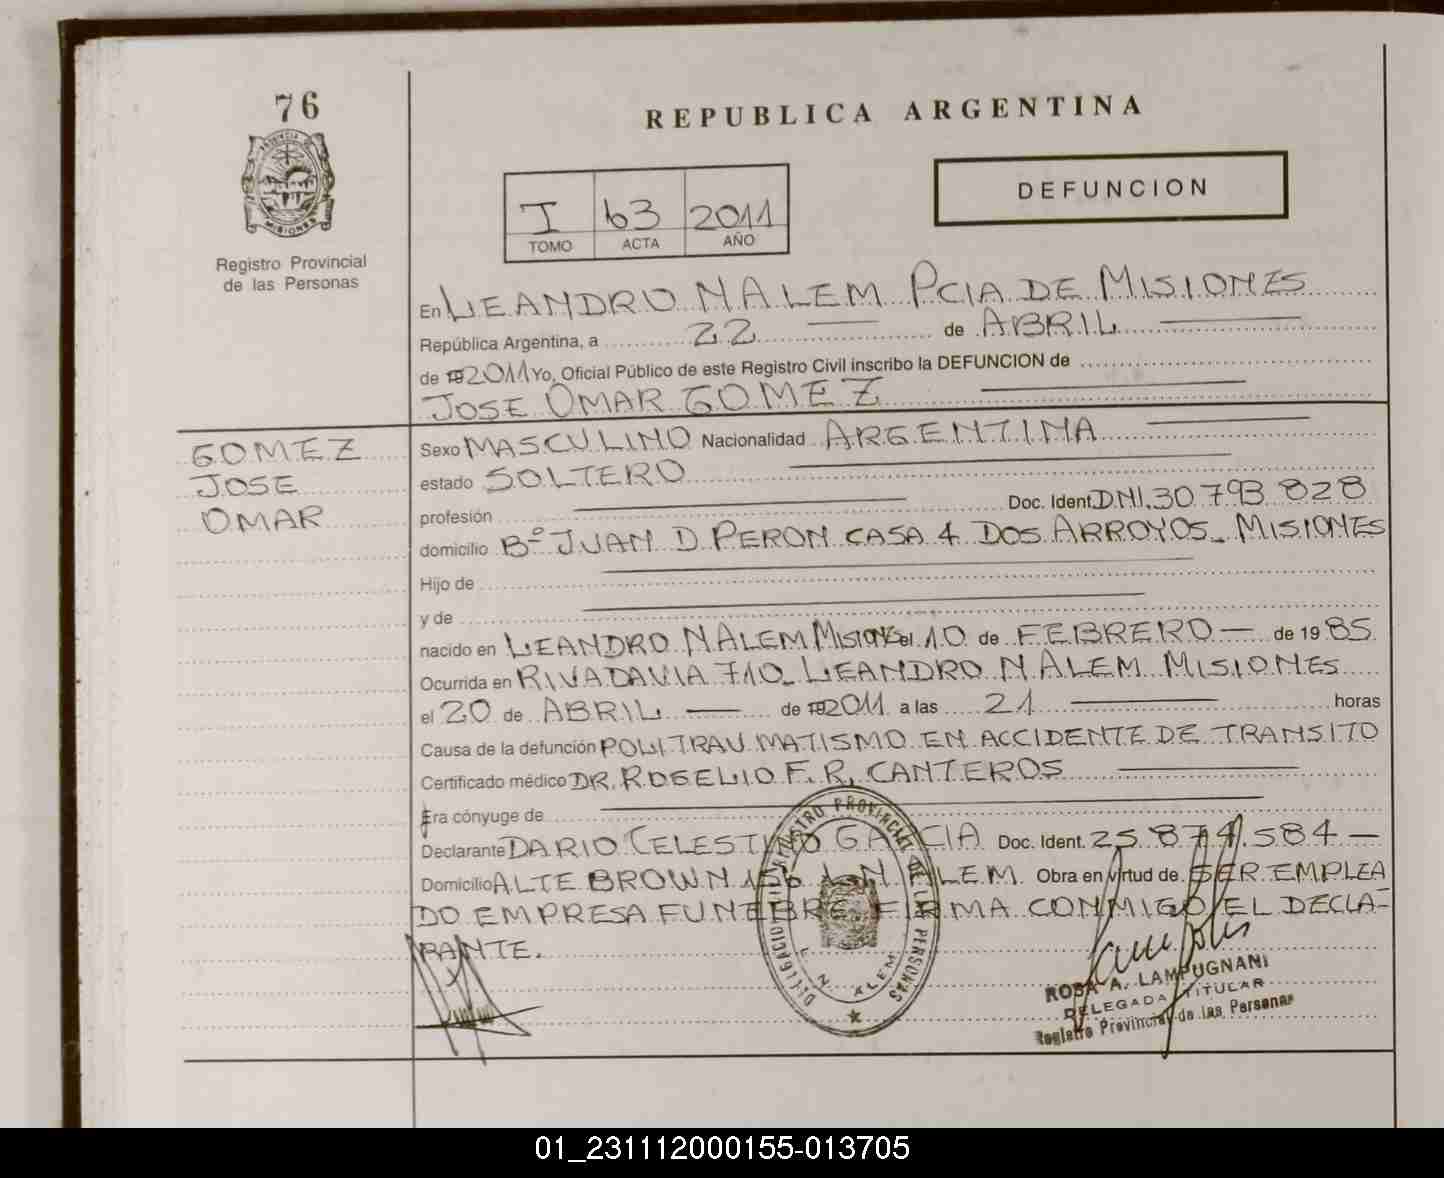 76
REPUBLICA ARGENTINA
PROVINCIA
MISIONES
Registro Provincial
de las Personas
DEFUNCION
I 63 2011
TOMO ACTA AÑO
En LEANDRO N ALEM PCIA DE MISIONES
República Argentina, a 22 de ABRIL
de 2011 Yo, Oficial Público de este Registro Civil inscribo la DEFUNCION de
JOSE OMAR GOMEZ
GOMEZ
JOSE
OMAR
Sexo MASCULINO Nacionalidad ARGENTINA
estado SOLTERO
profesión Doc. Ident. DNI. 30 793 828
domicilio Bº JUAN D PERON CASA 4 DOS ARROYOS. MISIONES
Hijo de
y de
nacido en LEANDRO N ALEM MISIONES el 10 de FEBRERO — de 1985
Ocurrida en RIVADAVIA 710. LEANDRO N ALEM MISIONES
el 20 de ABRIL — de 2011 a las 21 horas
Causa de la defunción POLITRAUMATISMO EN ACCIDENTE DE TRANSITO
Certificado médico DR. ROGELIO F. R. CANTEROS
Era cónyuge de
Declarante DARIO CELESTINO GARCIA Doc. Ident. 25.874.584 —
Domicilio ALTE BROWN L. N. ALEM. Obra en virtud de SER EMPLEA
DO EMPRESA FUNEBRE. FIRMA CONMIGO EL DECLA-
RANTE.
DELEGACION REGISTRO PROVINCIAL DE LAS PERSONAS
L. N. ALEM
ROSA A. LAMPUGNANI
DELEGADA TITULAR
Registro Provincial de las Personas
01_231112000155-013705